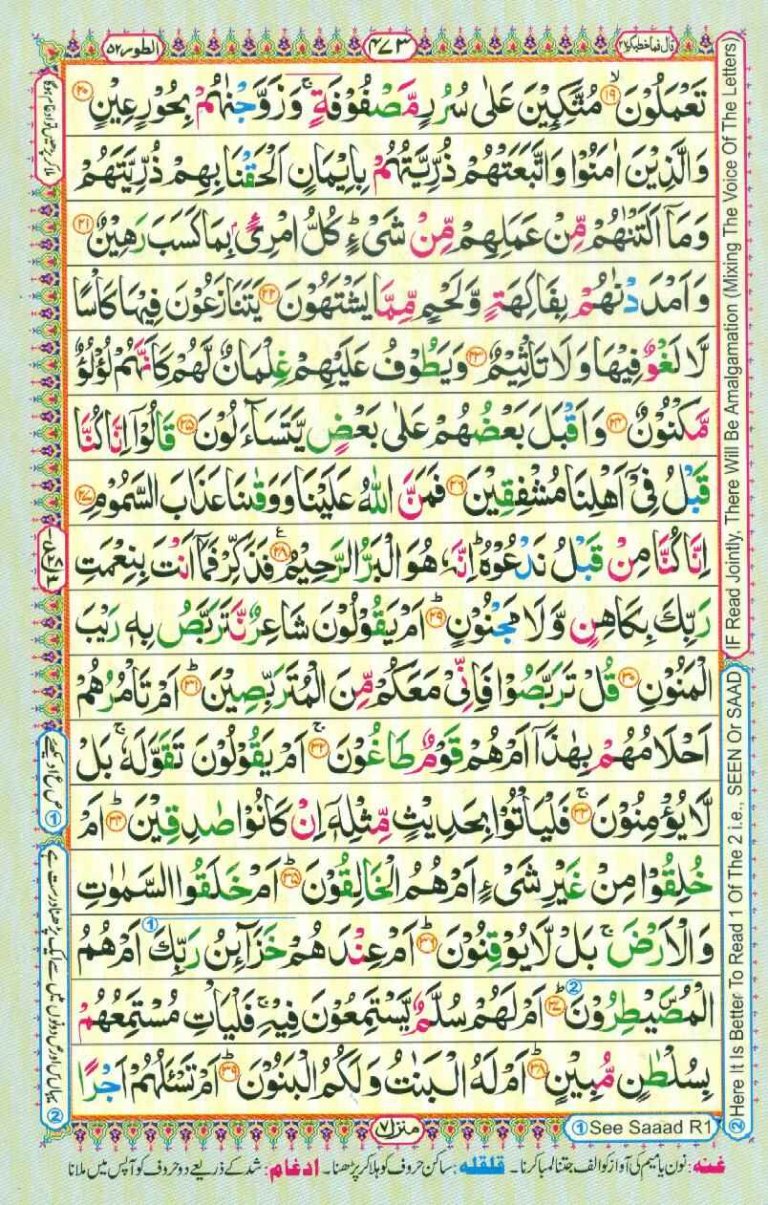 قال فما خطبكم ٢٧
٤٧٣
الطور ٥٢
تَعْمَلُوْنَ ۙ‏﴿۱۹﴾ مُتَّكِـِٕيْنَ عَلٰى سُرُرٍ مَّصْفُوْفَةٍ ۚ وَزَوَّجْنٰهُمْ بِحُوْرٍ عِيْنٍ ﴿۲۰﴾
وَالَّذِيْنَ اٰمَنُوْا وَاتَّبَعَتْهُمْ ذُرِّيَّتُهُمْ بِاِيْمَانٍ اَلْحَقْنَا بِهِمْ ذُرِّيَّتَهُمْ
وَمَاۤ اَلَتْنٰهُمْ مِّنْ عَمَلِهِمْ مِّنْ شَيْءٍ ؕ كُلُّ امْرِیًٴۢ بِمَا كَسَبَ رَهِيْنٌ ﴿۲۱﴾
وَاَمْدَدْنٰهُمْ بِفَاكِهَةٍ وَّلَحْمٍ مِّمَّا يَشْتَهُوْنَ ﴿۲۲﴾ يَتَنَازَعُوْنَ فِيْهَا كَاْسًا
لَّا لَغْوٌ فِيْهَا وَلَا تَاْثِيْمٌ ﴿۲۳﴾ وَيَطُوْفُ عَلَيْهِمْ غِلْمَانٌ لَّهُمْ كَاَنَّهُمْ لُؤْلُؤٌ
مَّكْنُوْنٌ ﴿۲۴﴾ وَاَقْبَلَ بَعْضُهُمْ عَلٰى بَعْضٍ يَّتَسَآءَلُوْنَ ﴿۲۵﴾ قَالُوْۤا اِنَّا كُنَّا
قَبْلُ فِىْۤ اَهْلِنَا مُشْفِقِيْنَ ﴿۲۶﴾ فَمَنَّ اللّٰهُ عَلَيْنَا وَوَقٰٮنَا عَذَابَ السَّمُوْمِ ﴿۲۷﴾
اِنَّا كُنَّا مِنْ قَبْلُ نَدْعُوْهُ ؕ اِنَّهٗ هُوَ الْبَرُّ الرَّحِيْمُ ﴿۲۸﴾ ع فَذَكِّرْ فَمَاۤ اَنْتَ بِنِعْمَتِ
رَبِّكَ بِكَاهِنٍ وَّلَا مَجْنُوْنٍ ؕ ﴿۲۹﴾ اَمْ يَقُوْلُوْنَ شَاعِرٌ نَّتَرَبَّصُ بِهٖ رَيْبَ
الْمَنُوْنِ ﴿۳۰﴾ قُلْ تَرَبَّصُوْا فَاِنِّىْ مَعَكُمْ مِّنَ الْمُتَرَبِّصِيْنَ ؕ ﴿۳۱﴾ اَمْ تَاْمُرُهُمْ
اَحْلَامُهُمْ بِهٰذَاۤ اَمْ هُمْ قَوْمٌ طَاغُوْنَ ۚ ﴿۳۲﴾ اَمْ يَقُوْلُوْنَ تَقَوَّلَهٗ ۚ بَلْ
لَّا يُؤْمِنُوْنَ ۚ ﴿۳۳﴾ فَلْيَاْتُوْا بِحَدِيْثٍ مِّثْلِهٖۤ اِنْ كَانُوْا صٰدِقِيْنَ ؕ ﴿۳۴﴾ اَمْ
خُلِقُوْا مِنْ غَيْرِ شَيْءٍ اَمْ هُمُ الْخَالِقُوْنَ ؕ ﴿۳۵﴾ اَمْ خَلَقُوا السَّمٰوٰتِ
وَالْاَرْضَ ۚ بَلْ لَّا يُوْقِنُوْنَ ؕ ﴿۳۶﴾ اَمْ عِنْدَهُمْ خَزَآئِنُ رَبِّكَ اَمْ هُمُ
الْمُصَۜيْطِرُوْنَ ؕ ﴿۳۷﴾ اَمْ لَهُمْ سُلَّمٌ يَّسْتَمِعُوْنَ فِيْهِ ۚ فَلْيَاْتِ مُسْتَمِعُهُمْ
بِسُلْطٰنٍ مُّبِيْنٍ ؕ ﴿۳۸﴾ اَمْ لَهُ الْبَنٰتُ وَلَكُمُ الْبَنُوْنَ ؕ ﴿۳۹﴾ اَمْ تَسْـَٔلُهُمْ اَجْرًا
منزل ٧
① See Saaad R1
IF Read Jointly, There Will Be Amalgamation (Mixing The Voice Of The Letters)
② Here It Is Better To Read 1 Of The 2 i.e., SEEN Or SAAD
① ص ر۱ دیکھئے
② یہاں س اور ص دونوں میں سے ایک پڑھنا درست ہے
غنه: نون یا میم کی آواز کو الف جتنا لمبا کرنا۔ قلقله: ساکن حروف کو ہلا کر پڑھنا۔ ادغام: شد کے ذریعے دو حروف کو آپس میں ملانا